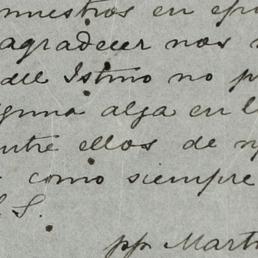 muestros en epo
agradecer nos
del Istmo no p
guna alga en l
ntre ellos de n
como siempre
S. S.
pp Mart